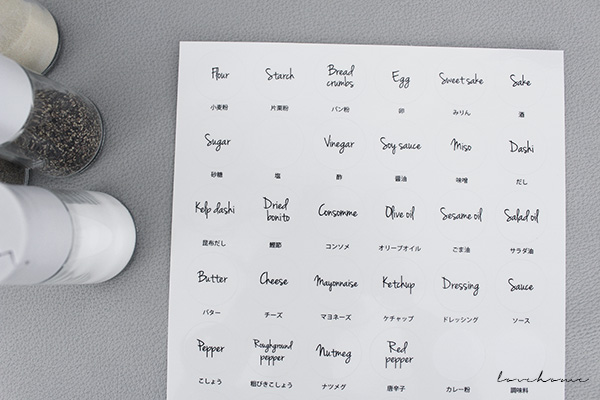 Flour Starch Bread crumbs Egg Sweet sake Sake
小麦粉 片栗粉 パン粉 卵 みりん 酒
Sugar Vinegar Soy sauce Miso Dashi
砂糖 塩 酢 醤油 味噌 だし
Kelp dashi Dried bonito Consomme Olive oil Sesame oil Salad oil
昆布だし 鰹節 コンソメ オリーブオイル ごま油 サラダ油
Butter Cheese Mayonnaise Ketchup Dressing Sauce
バター チーズ マヨネーズ ケチャップ ドレッシング ソース
Pepper Roughground pepper Nutmeg Red pepper
こしょう 粗びきこしょう ナツメグ 唐辛子 カレー粉 調味料
lovehome